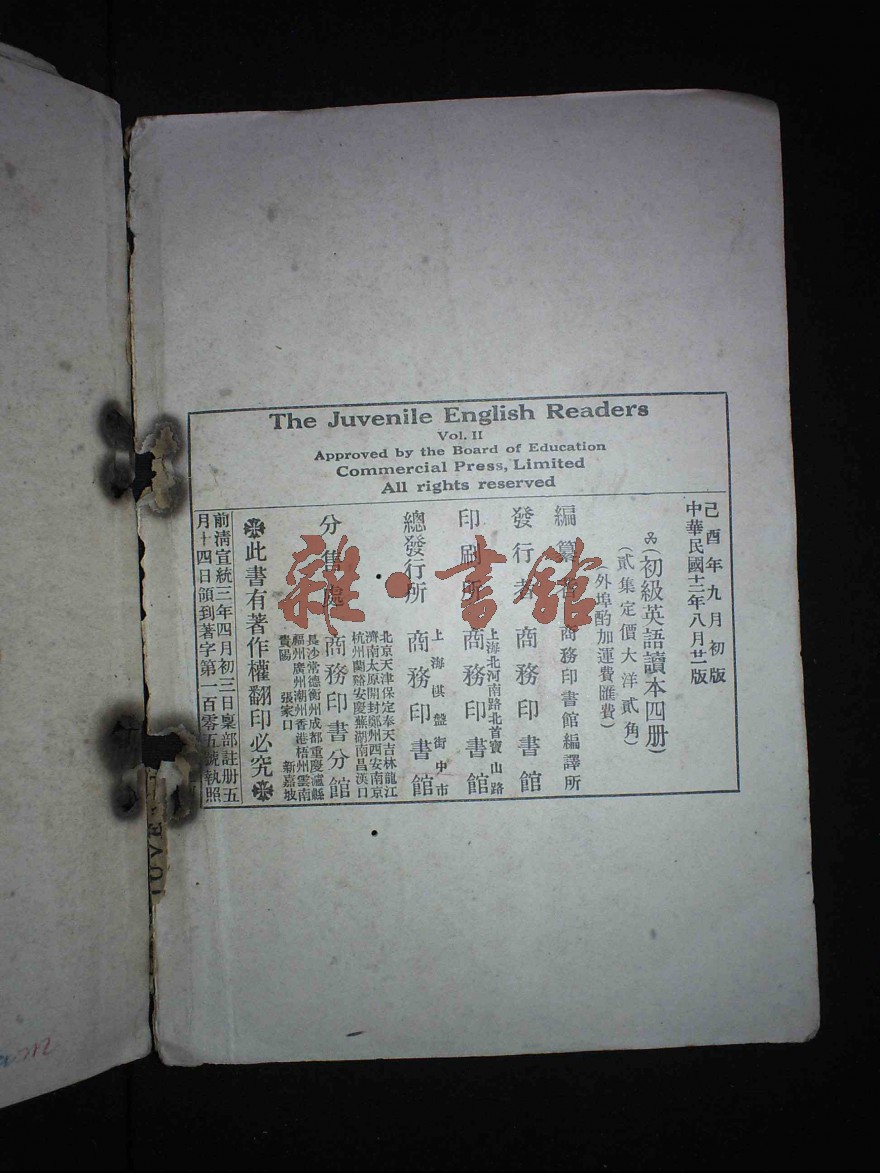 The Juvenile English Readers
Vol. II
Approved by the Board of Education
Commercial Press, Limited
All rights reserved
己酉年九月初版
中華民國十二年八月廿一版
(初級英語讀本四册)
(貳集定價大洋貳角)
(外埠酌加運費匯費)
編纂者 商務印書館編譯所
發行者 商務印書館
印刷所 上海北河南路北首寶山路 商務印書館
總發行所 上海棋盤街中市 商務印書館
分售處 商務印書分館
北京天津保定奉天吉林龍江
濟南太原開封鄭州西安南京
杭州蘭谿安慶蕪湖南昌漢口
長沙常德衡州成都重慶瀘縣
福州廣州潮州香港梧州雲南
貴陽 張家口 新嘉坡
此書有著作權翻印必究
前清宣統三年四月初三日稟部註册五
月十四日領到著字第一百零五號執照
雜·書館
JUVE